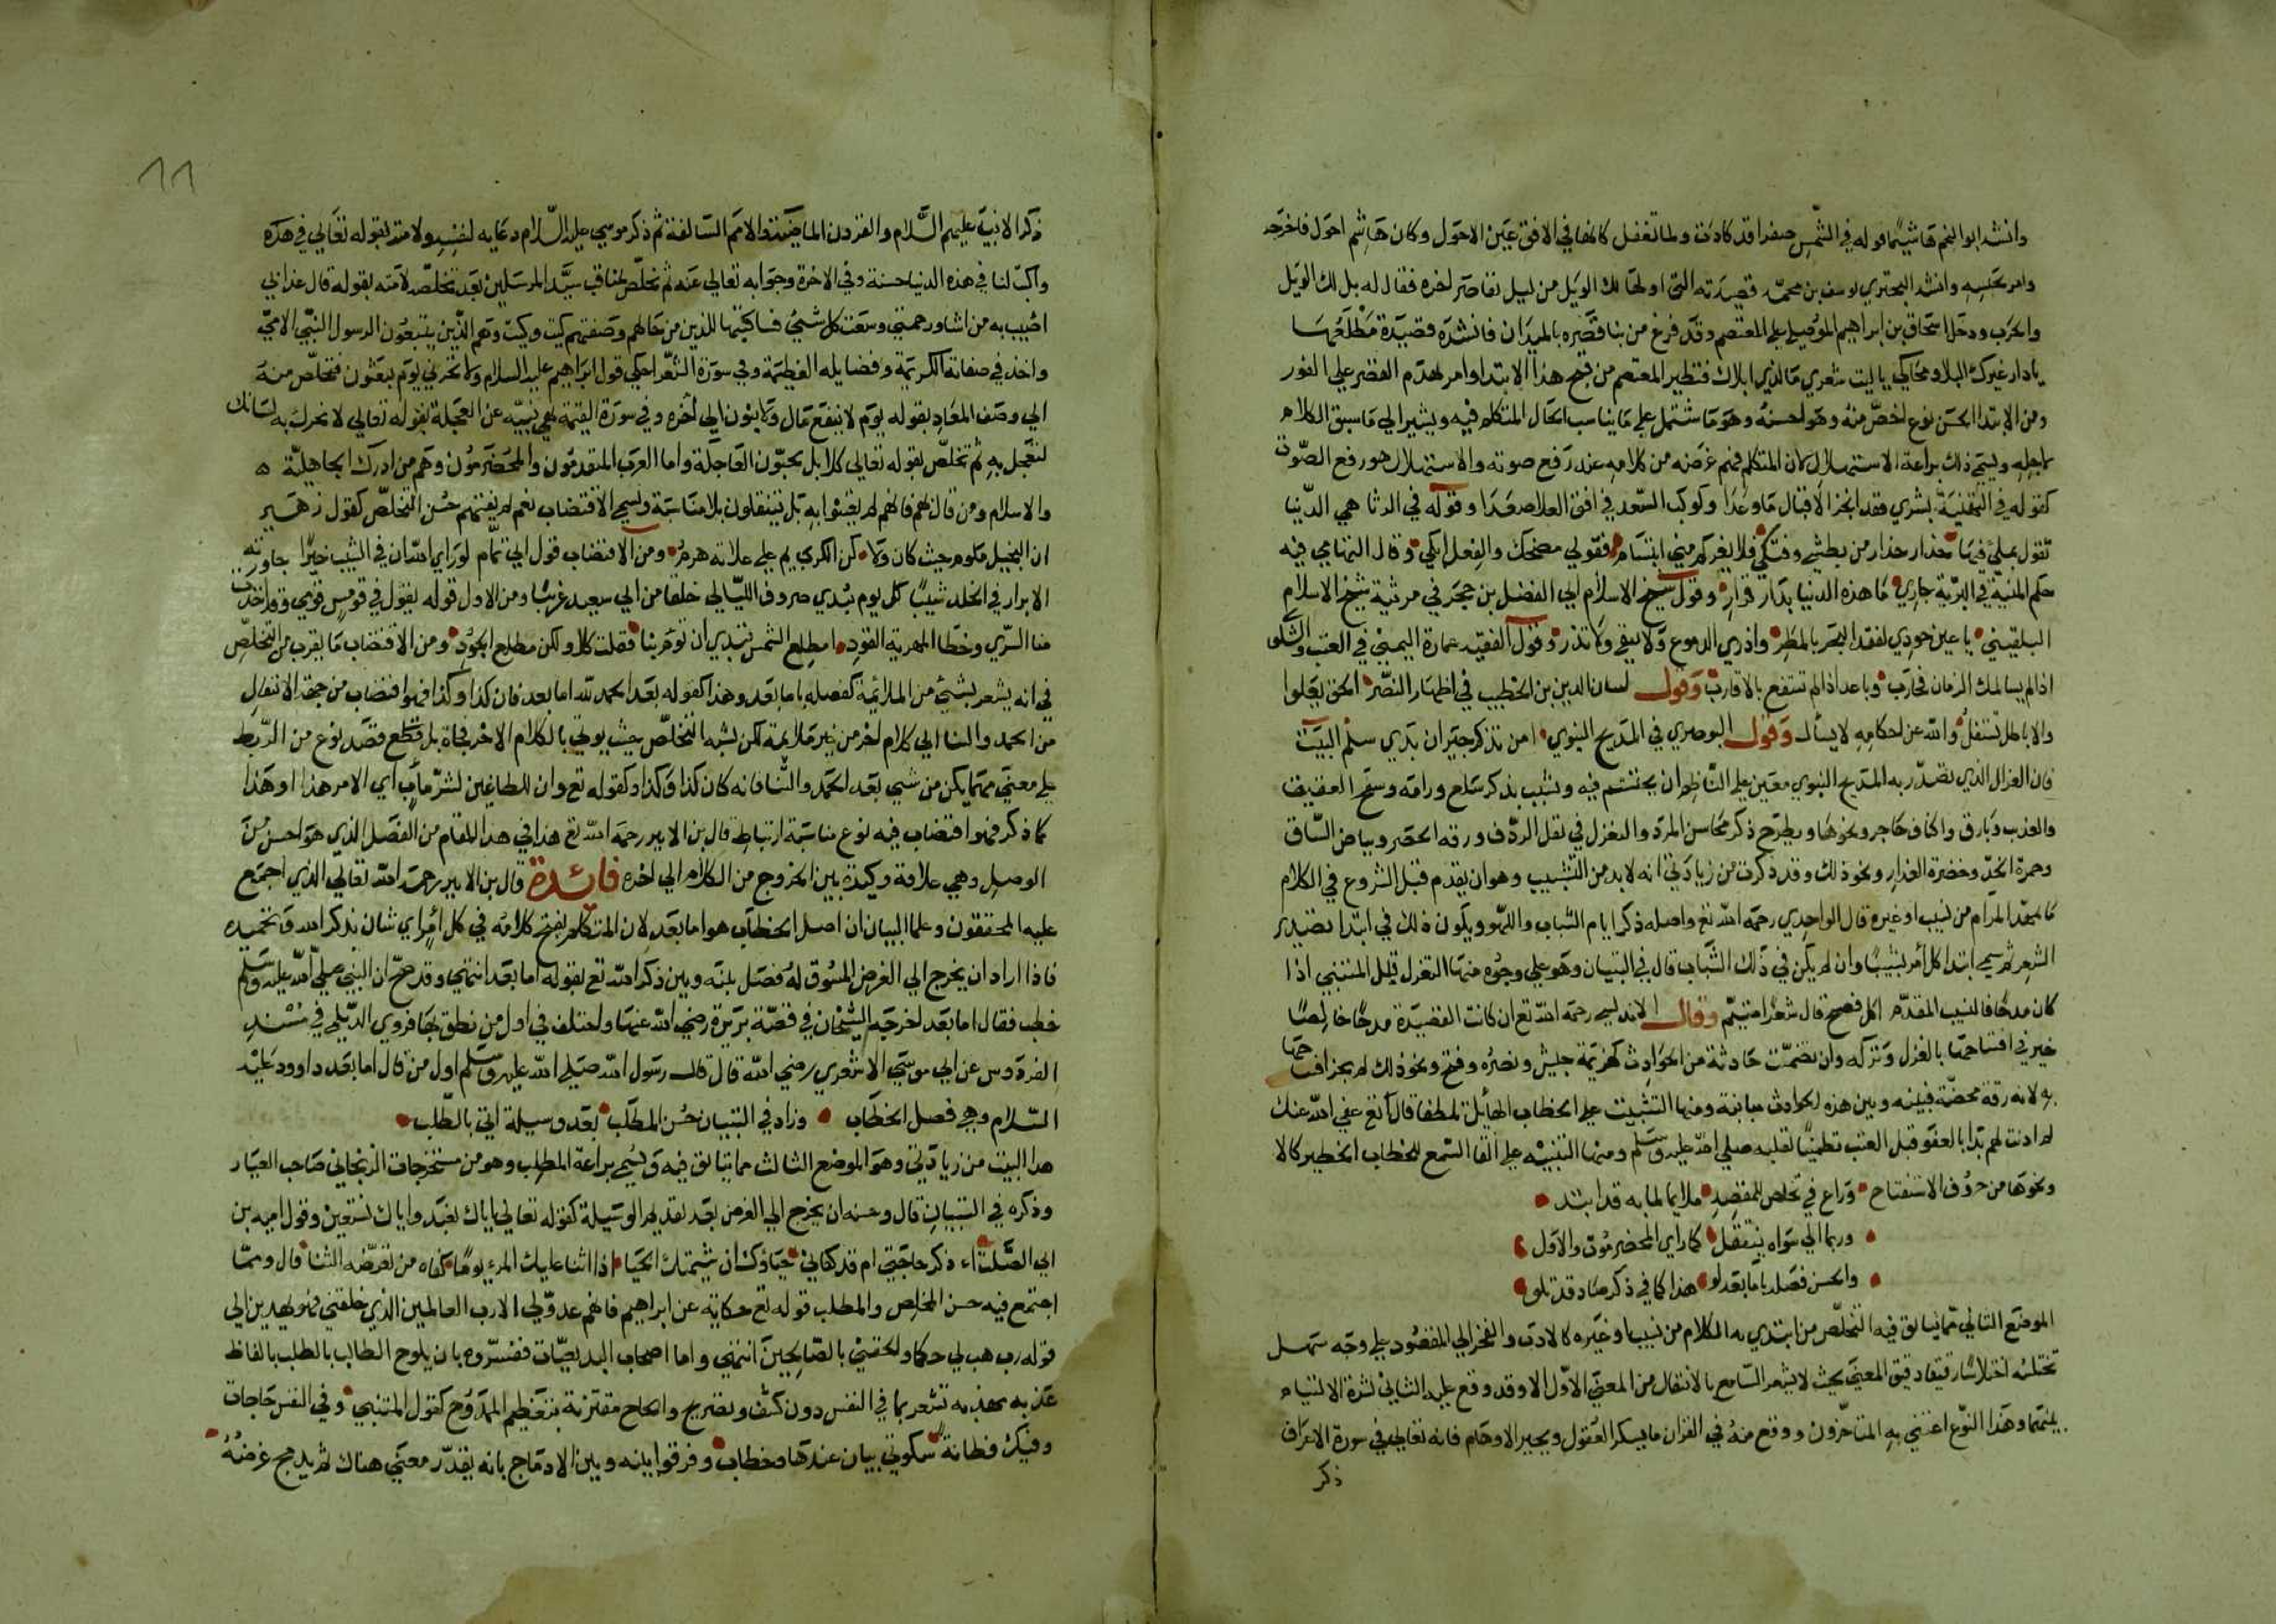 وانشد ابو النجم هاشيما قوله في الشمس صفرا قد كادت ولما تفعل كانها في الافق عين الاحول وكان هاشم احول فاخرجه
وامر بحبسه وانشد البحتري يوسف بن محمد قصيدته التي اولها لك الويل من ليل تقاصر اخره فقال له بل لك الويل
والحرب ودخل اسحاق بن ابراهيم الموصلي على المعتصم وقد فرغ من بنا قصره بالميدان فانشده قصيدة مطلعها
يا دار غيرك البلا ومحاكي يا ليت شعري ما الذي ابلاك فتطير المعتصم من قبح هذا الابتدا وامر بهدم القصر على الفور
ومن الابتدا الحسن نوع اخص منه وهو احسنه وهو ما شتمل على ما يناسب الحال المتكلم فيه ويشير الى ما سبق الكلام
لاجله ويسمى ذلك براعة الاستهلال كان المتكلم فهم غرضه من كلامه عند رفع صوته والاستهلال هو رفع الصوت
كقوله في التهنية بشرى فقد انجز الاقبال ما وعدا وكوكب السعد في افق العلا صعدا وقوله في الرثا هي الدنيا
تقول بملئ فيها حذار حذار من بطشي وفتكي فلا يغركم مني ابتسام فقولي مضحك والفعل مبكي وقال التهامي فيه
حكم المنية في البرية جاري ما هذه الدنيا بدار قرار وقول شيخ الاسلام ابي الفضل بن حجر في مرثية شيخ الاسلام
البلقيني يا عين جودي لفقد البحر بالمطر واذري الدموع ولا تبقي ولا تذر وقول الفقيه عمارة اليمني في العتب والشكوى
اذا لم يسالمك الزمان فحارب وباعد اذا لم تنتفع بالاقارب وقول لسان الدين بن الخطيب في اظهار النصر الحق يعلوا
والاباطل تسفل والله عن احكامه لا يسأل وقول البوصري في المديح النبوي امن تذكر جيران بذي سلم البيت
فان الغزل الذي تصدر به المديح النبوي معين على الناظم ان يحتشم فيه ويشبب بذكر سلع ورامة وسفح العقيق
والعذيب وبارق واكناف حاجر ونحوها ويطرح ذكر محاسن المرد والتغزل في ثقل الردف ورقه الخصر وبياض الساق
وحمرة الخد وخضرة العذار ونحو ذلك وقد ذكرت من زيادتي انه لا بد من التشبيب وهو ان يقدم قبل الشروع في الكلام
ما يمهد المرام من نسيب او غيره قال الواحدي رحمه الله تع واصله ذكر ايام الشباب واللهو ويكون ذلك في ابتدا قصيدة
الشعر ثم سمي ابتدا كل امر تشبيبا وان لم يكن في ذلك الشباب قال في التبيان وهو على وجوه منها التغزل قبل المتنبي اذا
كان مدحا فالنسيب المقدم اكل فصيح قال شعرا متيم وقال الاندلسي رحمه الله تع ان كانت القصيدة مدحا خالصا
خير في افتتاحها بالغزل وتركه وان تضمنت حادثة من الحوادث كهزيمة جيش ونصره وفتح ونحو ذلك لم يجز افتتاحها
به لانه رقة محضة فبينه وبين هذه الحوادث مباينة ومنها التثبيت على الخطاب الهائل تلطفا قال تع عفى الله عنك
لم اذنت لهم بدا بالعفو قبل العتب تطمينا لقلبه صلى الله عليه وسلم ومنها التنبيه على القا السمع للخطاب الخطير كالا
ونحوها من حروف الاستفتاح وراع في تخلص للمقصد ملايما لما به قد ابتد
وربما الى سواه ينتقل كما راى المخضرمون والاول
والحسن فصله باما بعد او هذا كما في ذكر صاد قد تلو
الموضع الثاني مما يتانق فيه التخلص من ابتدي به الكلام من نسيب او غيره كالادب والفخر الى المقصود على وجه سهل
تختلسه اختلاسا رقيقا دقيق المعنى بحيث لا يشعر السامع بالانتقال من المعنى الاول الا وقد وقع عليه الثاني لشدة الالتيام
بينهما وهذا النوع اعتنى به المتاخرون ووقع منه في القران ما يسكر العقول ويحير الاوهام فانه تعالى في سورة الاعراف
ذكر
11
ذكر الانبيا عليهم السلام والقرون الماضية والامم السالفة ثم ذكر موسى عليه السلام ودعايه لنفسه ولامته بقوله تعالى في هذه
واكتب لنا في هذه الدنيا حسنة وفي الاخرة وجوابه تعالى عنه ثم تخلص بمناقب سيد المرسلين بعد تخلصه لامته بقوله قال عذابي
اصيب به من اشا ورحمتي وسعت كل شيئ فساكتبها للذين من حالهم وصفتهم كيت وكيت وهم الذين يتبعون الرسول النبي الامي
واخذ في صفاته الكريمة وفضايله العظيمة وفي سورة الشعرا حكى قول ابراهيم عليه السلام ولا تخزني يوم يبعثون فتخلص منه
الى وصف المعاد بقوله يوم لا ينفع مال ولا بنون الى اخره وفي سورة القيمة نهي نبيه عن العجلة بقوله تعالى لا تحرك به لسانك
لتعجل به ثم تخلص بقوله تعالى كلا بل تحبون العاجلة واما العرب المتقدمون والمخضرمون وهم من ادرك الجاهلية
والاسلام ومن قال لهم فانهم لم يعتنوا به بل ينتقلون بلا مناسبة ويسمى الاقتضاب نعم لم يفتهم حسن التخلص كقول زهير
ان البخيل ملوم حيث كان ولا كن الكريم على علاته هرم ومن الاقتضاب قول ابي تمام لو راي الله ان في الشيب خيرا جاورته
الابرار في الخلد شيبا كل يوم تبدي صروف الليالي خلقا من ابي سعيد غريبا ومن الاول قوله يقول في قومس قومي وقد اخذت
منا السرى وخطا المهرية القود امطلع الشمس تبتدي ان تؤم بنا فقلت كلا ولكن مطلع الجود ومن الاقتضاب ما يقرب من التخلص
في انه يشعر بشيئ من الملائمة كفصله باما بعد وهذا كقوله بعد الحمد لله اما بعد فان كذا وكذا فهو اقتضاب من جهة الانتقال
من الحمد والثنا الى كلام اخر من غير ملايمة لكن يشبه التخلص حيث يوتى بالكلام الاخر فجاة بل قطع قصد نوع من الربط
على معنى مهما يكن من شيئ بعد الحمد والثنا فانه كان كذا وكذا وكقوله تع وان للطاغين لشر ماب اي الامر هذا او هذا
كما ذكر فهو اقتضاب فيه نوع مناسبة ارتباط قال بن الاثير رحمه الله تع هذا في هذا المقام من الفصل الذي هو احسن من
الوصل وهي علاقة وكيدة بين الخروج من الكلام الى اخره فائدة قال بن الاثير رحمه الله تعالى الذي اجمع
عليه المحققون وعلما البيان ان اصل الخطاب هو اما بعد لان المتكلم يفتح كلامه في كل امر اي شان بذكر الله وتحميده
فاذا اراد ان يخرج الى الغرض المسوق له فصل بينه وبين ذكر الله تع بقوله اما بعد انتهى وقد صح ان النبي صلى الله عليه وسلم
خطب فقال اما بعد اخرجه الشيخان في قصة بريرة رضي الله عنها واختلف في اول من نطق بها فروي الديلمي في مسند
الفردوس عن ابي موسى الاشعري رضي الله قال قال رسول الله صلى الله عليه وسلم اول من قال اما بعد داوود عليه
السلام وهي فصل الخطاب وزاد في التبيان حسن المطلب بعد وسيلة اتى بالطلب
هذا البيت من زيادتي وهو الموضع الثالث مما يتانق فيه ويسمى براعة المطلب وهو من مستخرجات الزنجاني صاحب العيار
وذكره في التبيان قال وحسنه ان يخرج الى الغرض بعد تقديم الوسيلة كقوله تعالى اياك نعبد واياك نستعين وقول اميه بن
ابي الصلت اء ذكر حاجتي ام قد كفاني حياؤك ان شيمتك الحيا اذا اثنا عليك المرء يوما كفاه من تعرضه الثنا قال ومما
اجتمع فيه حسن التخلص والمطلب قوله تع حكاية عن ابراهيم فانهم عدو لي الا رب العالمين الذي خلقني فهو يهدين الى
قوله رب هب لي حكما والحقني بالصالحين انتهى واما اصحاب البديعيات ففسروه بان يلوح الطالب بالطلب بالفاظ
عذبه مهذبه تشعر بما في النفس دون كشف وتصريح والحاح مقترنة بتعظيم الممدوح كقول المتنبي وفي النفس حاجات
وفيك فطانة سكوتي بيان عندها وخطاب وفرقوا بينه وبين الادماج بانه يقدر معنى هناك ثم يدمج غرضه